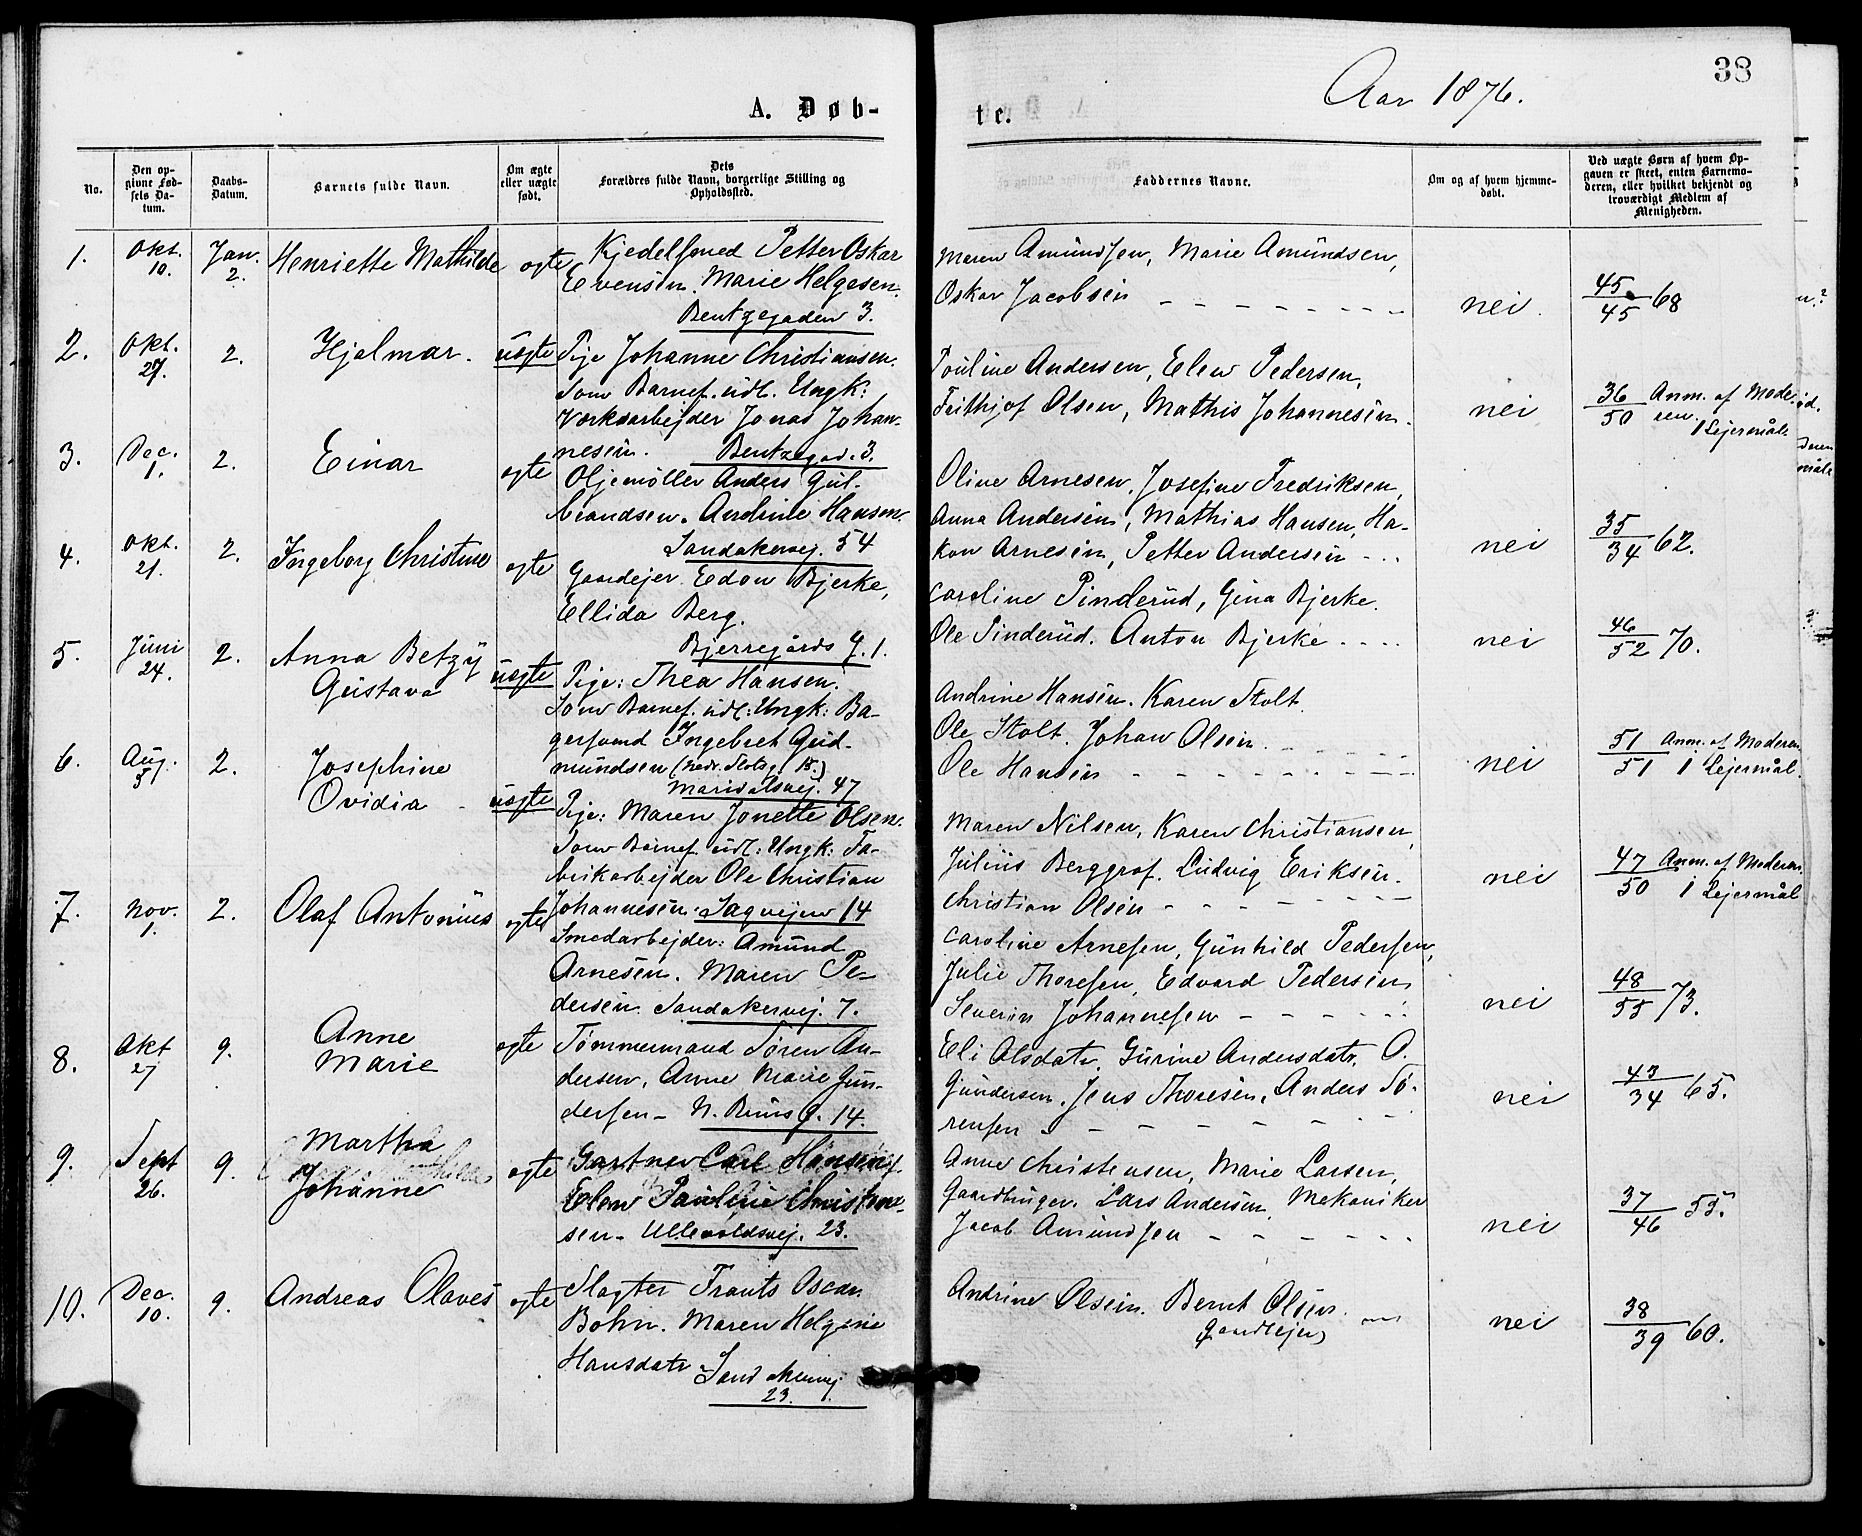 38
Aar 1876.
A. Døb-
te.
No.
Den op-
givne Fød-
sels Da-
tum.
Daabs-
Datum.
Barnets fulde Navn.
Om ægte
eller uægte
født.
Dets
Forældres fulde Navn, borgerlige Stilling og
Opholdssted.
Faddernes Navne.
Om og af hvem hjemme-
døbt.
Ved uægte Børn af hvem Op-
gaven er skeet, enten Barnemo-
deren, eller hvilket bekjendt og
troværdigt Medlem af
Menigheden.
1.
Okt.
10.
Jan.
2.
Henriette Mathilde
ægte
Kjedelsmed Petter Oskar
Evensen. Marie Helgesen.
Bentzegaden 3.
Maren Amundsen, Marie Amundsen,
Oskar Jacobsen
nei.
45
45 68
2.
Okt.
27.
2.
Hjalmar.
uægte
Pige Johanne Christiansen.
Som Barnef. udl. Ungk:
Værksarbejder Jonas Johan-
nesen. Bentzegad. 3.
Pouline Andersen, Elew Pedersen,
Frithjof Olsen, Mathis Johannesen.
nei
36
50
Anm. af Mode-
ren.
1 Lejermål.
3.
Dec.
1.
2.
Einar
ægte
Oljemøller Anders Gul-
brandsen. Andrine Hansen.
Sandakervej. 54
Oline Arnesen, Josefine Fredriksen,
Anna Andersen, Mathias Hansen, Ha-
kon Arnesen, Petter Andersen
nei
35
34 62.
4.
Okt.
21.
2.
Ingeborg Christine
ægte
Gaardejer Edon Bjerke,
Ellida Berg.
Bjerregårds g. 1.
Caroline Pinderud, Gina Bjerke.
Ole Pinderud. Anton Bjerke
nei
46
52 70.
5.
Juni
24.
2.
Anna Betzy
Gustava
uægte
Pige: Thea Hansen.
Som Barnef. udl: Ungk: Ba-
gersvend Ingebret Gud-
mundsen (Nedr. Slotsg. 15.)
Maridalsvej. 47
Andrine Hansen. Karen Stolt.
Ole Stolt. Johan Olsen.
Ole Hansen
nei
51
51
Anm. af Moderen
1 Lejermål.
6.
Aug.
5.
2.
Josephine
Ovidia
uægte
Pige: Maren Jonette Olsen.
Som Barnef. udl: Ungk: Fa-
brikarbejder Ole Christian
Johannesen. Sagvejen 14
Maren Nilsen, Karen Christiansen,
Julius Berggraf. Ludvig Eriksen.
Christian Olsen
nei
47
50
Anm. af Moderen
1 Lejermål
7.
Nov.
1.
2.
Olaf Antonius
ægte
Smedarbejder: Amund
Arnesen. Maren Pe-
dersen. Sandakervej. 7.
Caroline Arnesen, Gunhild Pedersen,
Julie Thoresen, Edvard Pedersen,
Severin Johannesen
nei
48
55 73.
8.
Okt
27
9.
Anne
Marie
ægte
Tømmermand Søren An-
dersen, Anne Marie Gun-
dersen - N. Bruns g. 14.
Eli Olsdatr. Gurine Andersdatr. O.
Gundersen. Jens Thoresen, Anders Sø-
rensen
nei
43
34 65.
9.
Sept
26.
9.
Martha
Johanne
ægte
Gartner Carl Hansen,
Elen Pauline Christen-
sen - Ullevoldsvej. 23.
Anne Christensen, Marie Larsen,
Gaardbruger. Lars Andersen, Mekaniker
Jacob Amundsen
nei
37
46 55.
10.
Dec.
10.
9.
Andreas Olaves
ægte
Slagter Frants Oscar
Bohn. Maren Helgine
Hansdatr. Sandakervej
23.
Andrine Olsen. Bernt Olsen.
Gaardejer
nei
38
39 60.